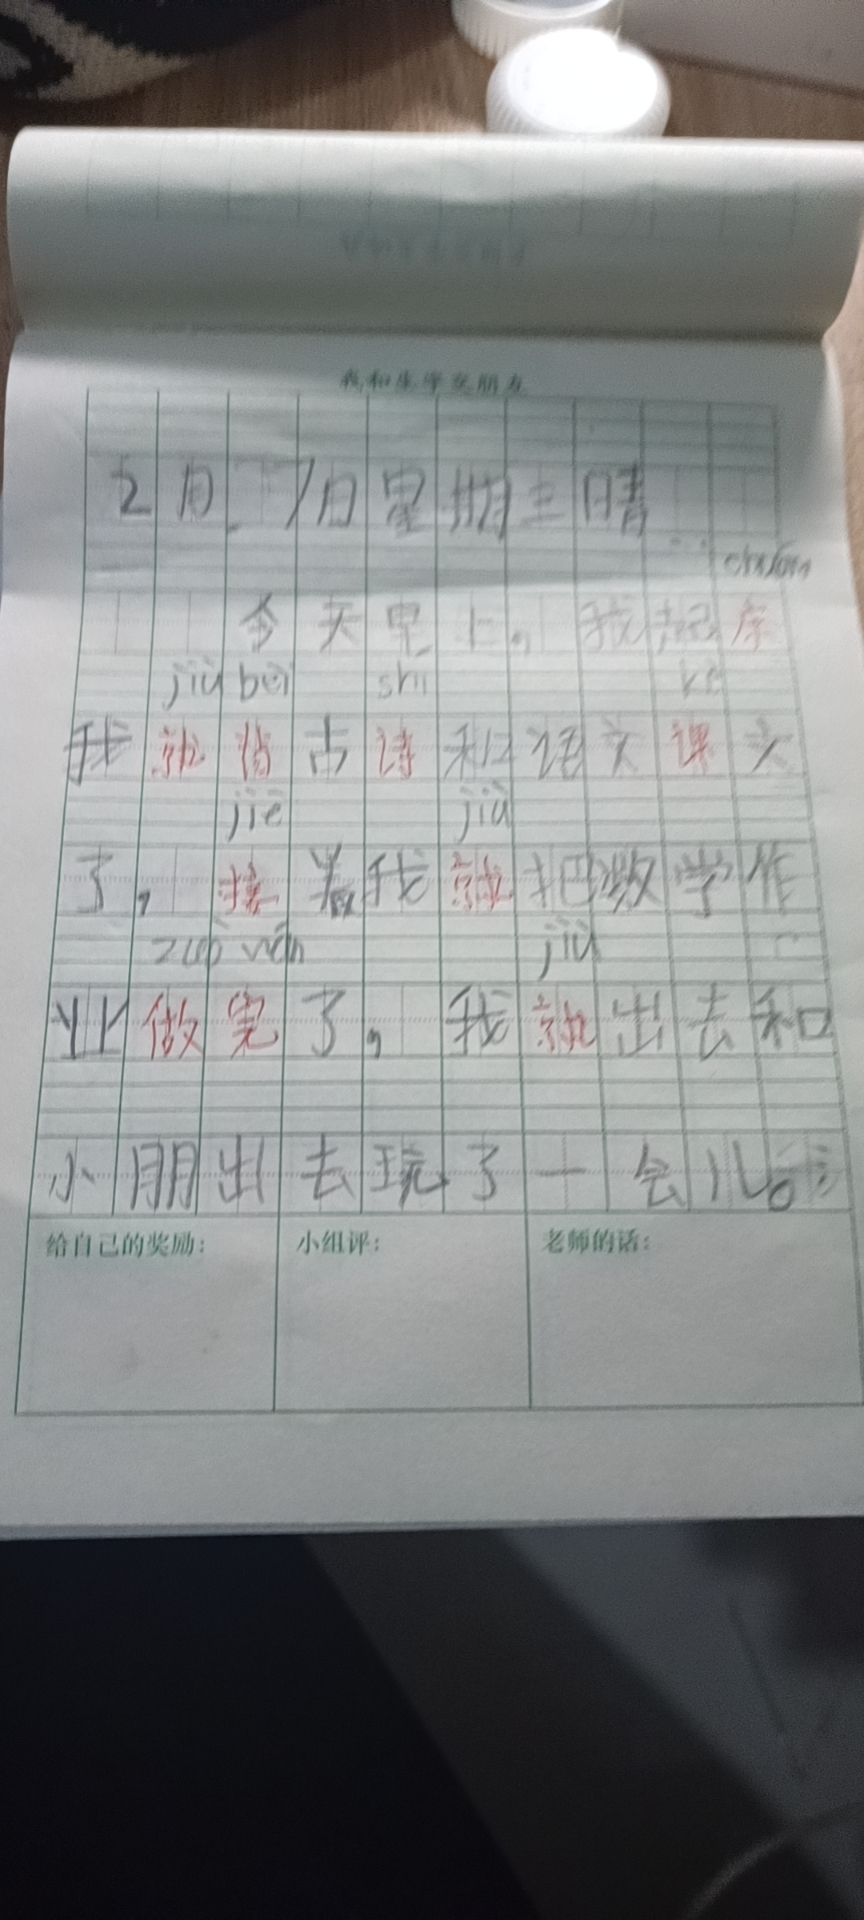 我和生字交朋友
2月 7日星期三晴
chuán
今天早上,我起床
jiù bèi shī kè
我就背古诗和语文课文
jiē jiù
了,接着我就把数学作
zuò wán jiù
业做完了,我就出去和
小朋出去玩了一会儿。
给自己的奖励: 小组评: 老师的话: